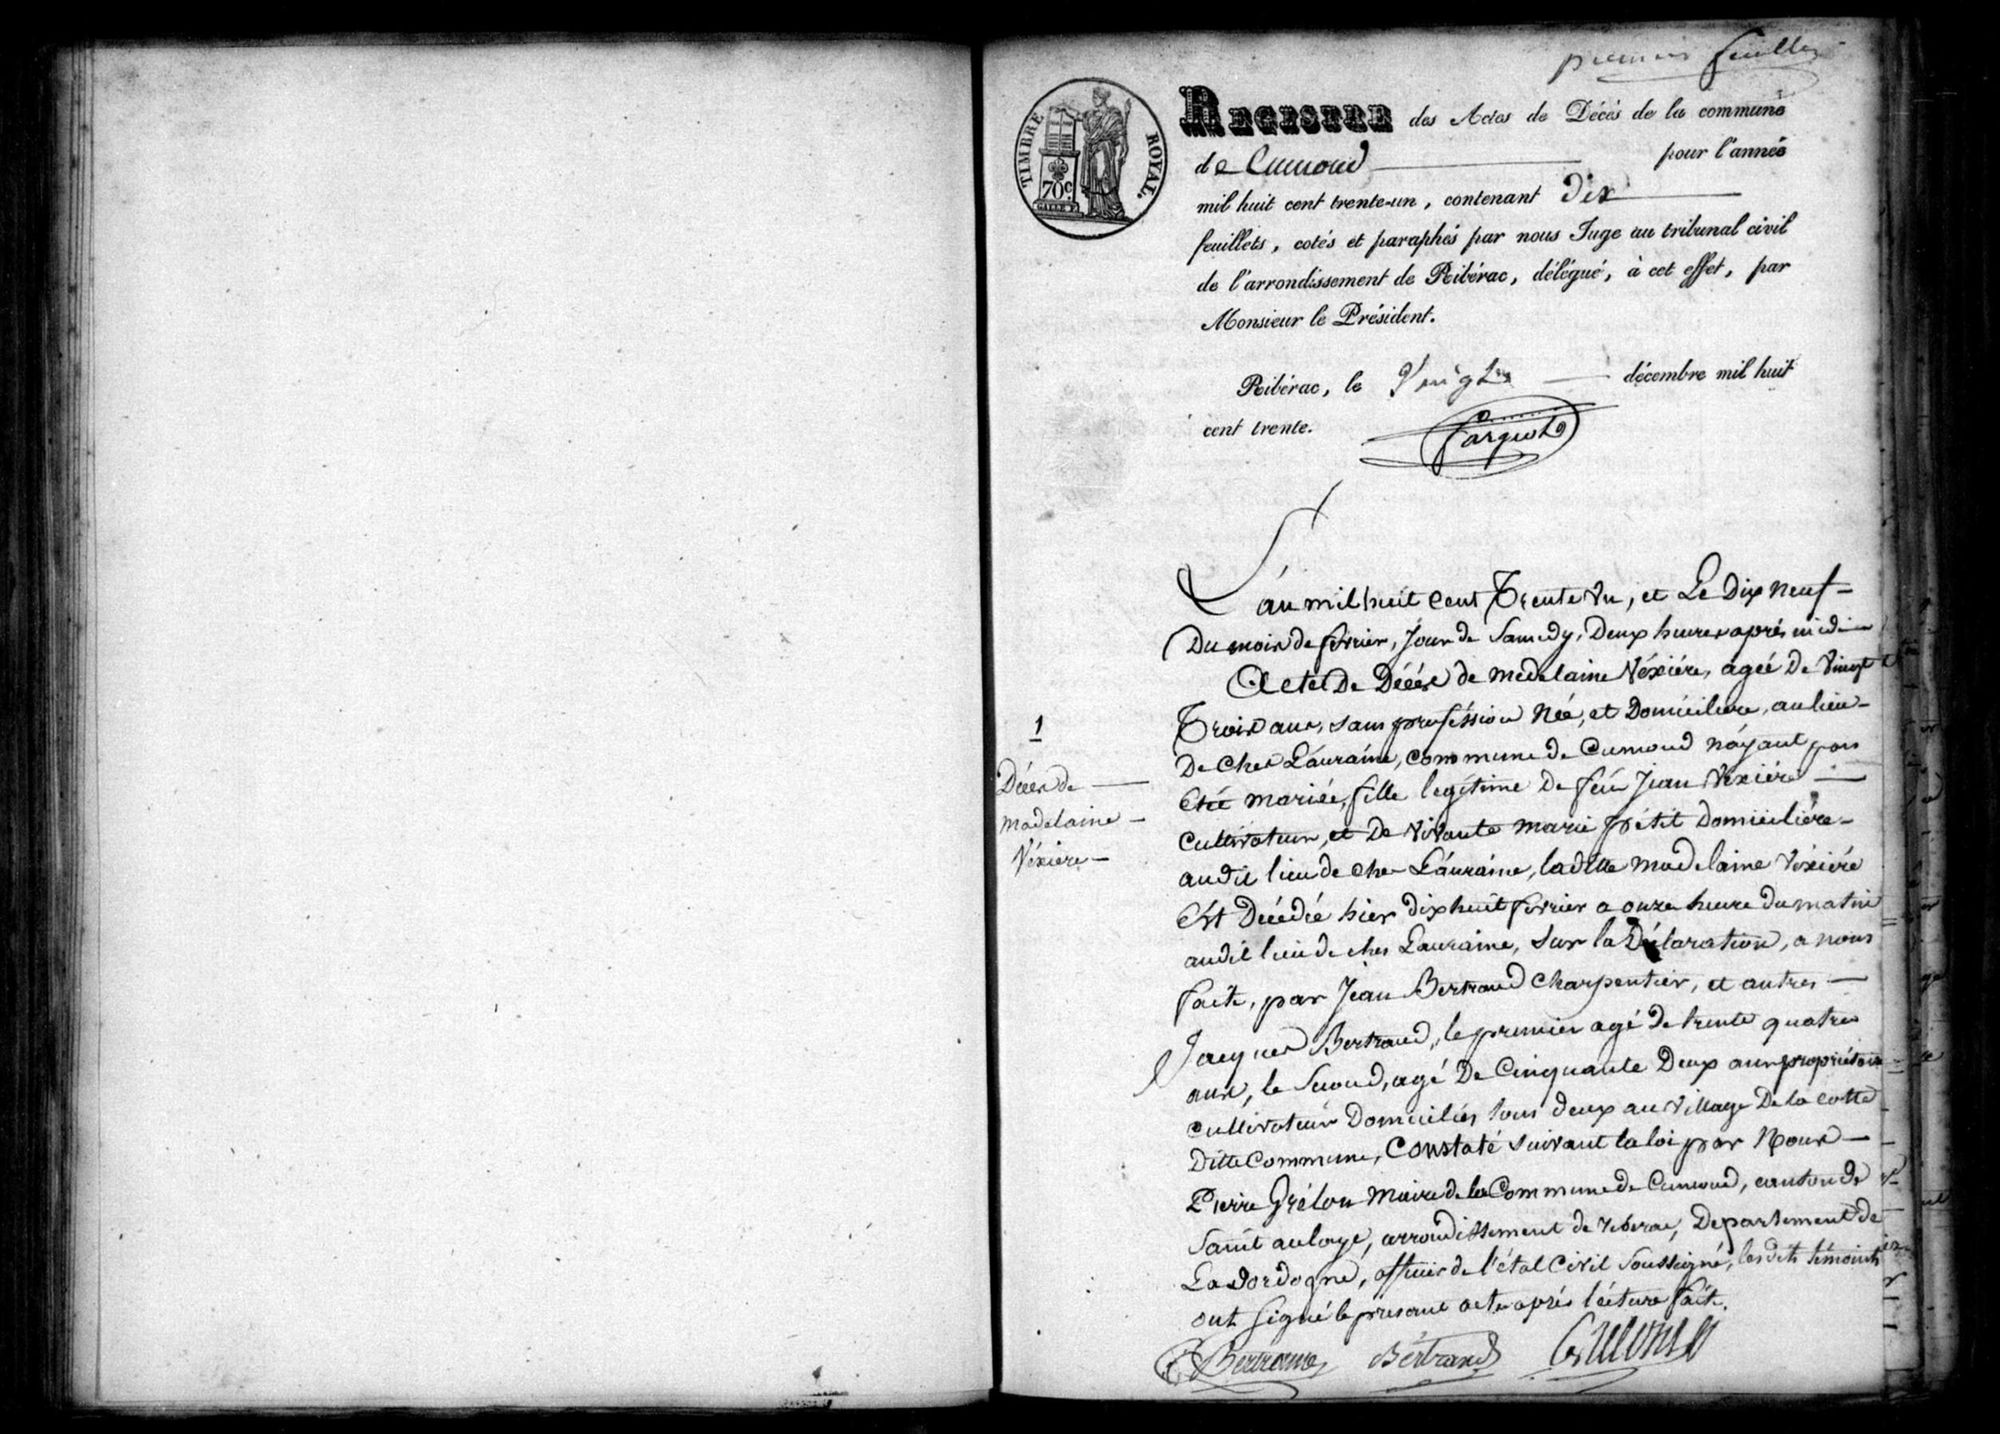 premier feuillet
TIMBRE ROYAL.
70c.
REGISTRE des Actes de Décès de la commune
de Cumond pour l'année
mil huit cent trente-un, contenant Dix
feuillets, cotés et paraphés par nous Juge au tribunal civil
de l'arrondissement de Ribérac, délégué, à cet effet, par
Monsieur le Président.
Ribérac, le Vingt décembre mil huit
cent trente.
L'an mil huit cent Trente Un, et Le Dix neuf
Du mois de fevrier, Jour de Samedy, Deux heures après midi
Acte De Décès de Madelaine Véxiére, agée De Vingt
Trois ans, sans proféssion Née, et Domiciliere, au lieu
De Chez Lauraine, commune de Cumond n'ayant pas
Eté mariée, fille legitime De feu Jean Véxiére
cultivateur, et De vivante marie petit Domiciliére
audit lieu de chez Lauraine, laditte Madelaine Véxiére
Est Décédée hier dix huit fevrier a onze heure du matin
audit lieu de chez Lauraine, sur la Déclaration, a nous
faite, par Jean Bertrand Charpentier, et autres
Jacques Bertrand, le premier agé de trente quatre
ans, le Second, agé De Cinquante Deux ans propriétaire
cultivateur Domiciliés tous deux au village De la cotte
Ditte Commune, Constaté suivant la loi par Nous
Pierre Grélou Maire de la Commune de Cumond, canton de
Saint aulaye, arrondissement de riberac, Departement de
La Dordogne, officier de l'état Civil Soussigné, lesdits témoints
ont Signé le present acte après lecture faite.
Bertrand Bertrand
1
Décès de
Madelaine
Véxiére